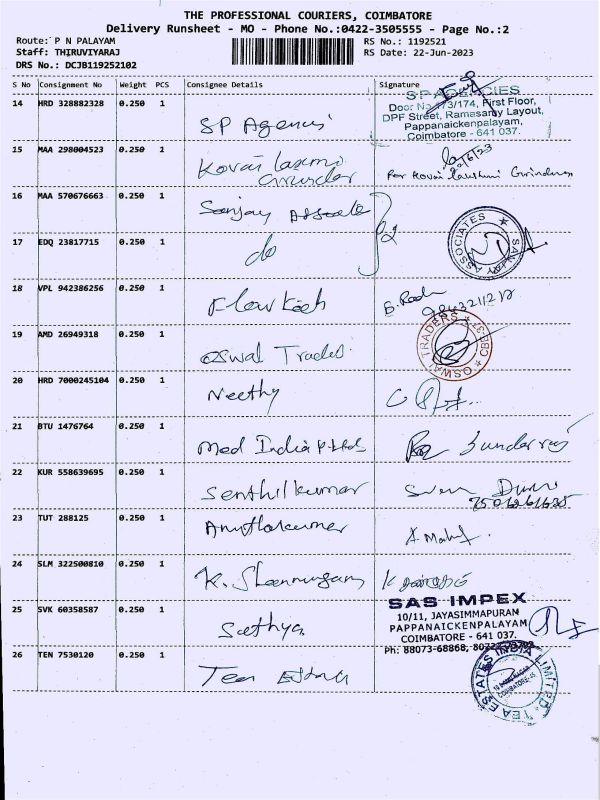 THE PROFESSIONAL COURIERS, COIMBATORE
Delivery Runsheet - MO - Phone No.:0422-3505555 - Page No.:2
Route: P N PALAYAM
Staff: THIRUVIYARAJ
DRS No.: DCJB119252102
RS No.: 1192521
RS Date: 22-Jun-2023
S No Consignment No Weight PCS Consignee Details Signature
14 HRD 328882328 0.250 1 SP Agencies
SP AGENCIES
Door No. 173/174, First Floor,
DPF Street, Ramasamy Layout,
Pappanaickenpalayam,
Coimbatore - 641 037.
15 MAA 298004523 0.250 1 Kovai Laxmi
For Kovai Lakshmi
16 MAA 570676663 0.250 1 Sanjay
SANJAY ASSOCIATES
17 EDQ 23817715 0.250 1 do
18 VPL 942386256 0.250 1
19 AMD 26949318 0.250 1 Oswal Trades
OSWAL TRADERS CBE-37
20 HRD 7000245104 0.250 1 Neethy
21 BTU 1476764 0.250 1 Med India P. Ltd Sundarraj
22 KUR 558639695 0.250 1 Senthilkumar
23 TUT 288125 0.250 1
24 SLM 322500810 0.250 1 K. Shanmugam
25 SVK 60358587 0.250 1 Sathya
SAS IMPEX
10/11, JAYASIMMAPURAM
PAPPANAICKENPALAYAM
COIMBATORE - 641 037.
Ph: 88073-68868,
26 TEN 7530120 0.250 1 Tea Estate
TEA ESTATES INDIA LIMITED